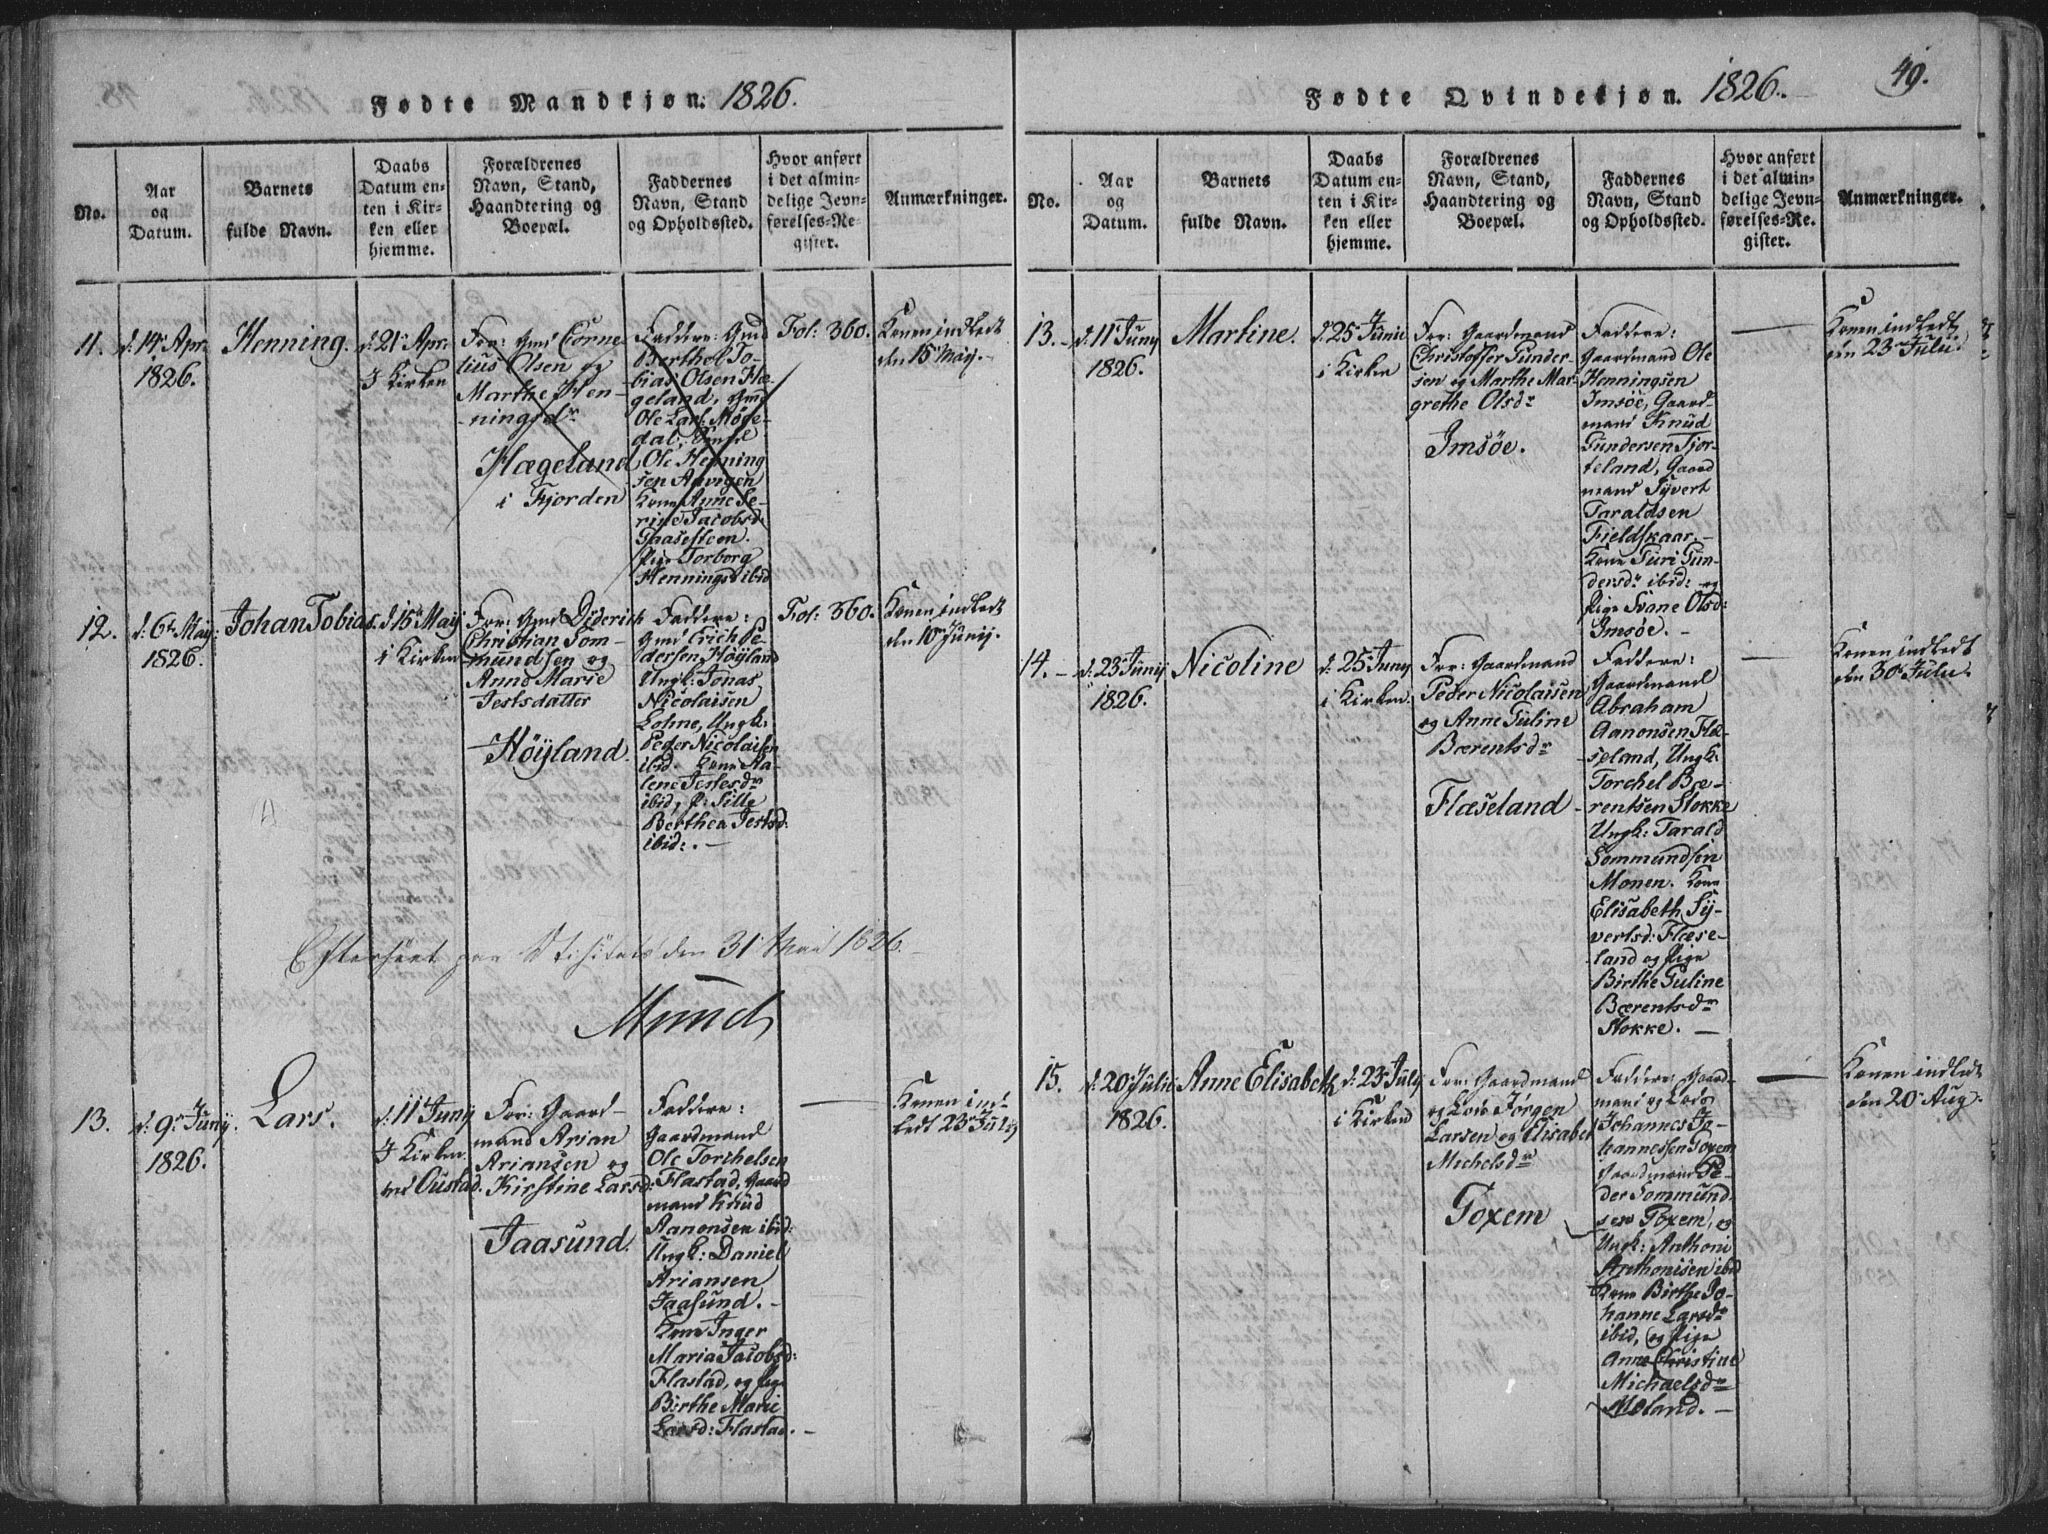 Fødte Mandkjøn. 1826.
No.
Aar
og
Datum.
Barnets
fulde Navn.
Daabs
Datum en-
ten i Kir-
ken eller
hjemme.
Forældrenes
Navn, Stand,
Haandtering og
Boepæl.
Faddernes
Navn, Stand
og Opholdssted.
Hvor anført
i det almin-
delige Jevn-
førelses-Re-
gister.
Anmærkninger.
11.
d. 14 Apr:
1826.
Henning.
d. 21 Apr:
I Kirken
For: Gmd Corne
lius Olsen og
Marthe Hen-
ningsdr
Hægeland
i Fjorden
Faddere: Gmd
Berthel To-
bias Olsen Hæ-
geland, Gmd
Ole Lars: Møge-
dal,
Ole Henning
sen Aavigen
Kone Anne Se-
rine Jacobsd:
Gaasesteen.
Pige Torborg
Hennings ibid
Fol: 360.
Konen indledt
den 15 Maij.
12.
d. 6t Maij:
1826.
Johan Tobias.
d. 15 Maij
i Kirken
For: Gmd Diderich
Christian Som-
mundsen og
Anne Marie
Jestsdatter
Høyland.
Faddere:
Gmd Erich Pe-
dersen Høyland
Ungk: Jonas
Nicolaisen
Lohne, Ungk:
Peder Nicolaisen
ibid. Kone Aa-
lene Jestesdr
ibid, P: Sille
Berthea Jestsd:
ibid:. —
Fol: 360.
Konen indledt
den 10 Junij.
Efterseet paa Visitats den 31 Mai 1826.
Munch
13.
d. 9 Junij.
1826.
Lars.
d. 11 Junij
I Kirken
ved Oustad.
For: Gaard-
mand Arian
Ariansen og
Kirstine Larsd:
Jaasund.
Faddere:
Gaardmand
Ole Torchelsen
Flastad, Gaard
mand Knud
Aanonsen ibid:
Ungk: Daniel
Ariansen
Jaasund. —
Kone Inger
Maria Jacobsd:
Flastad, og Pige
Birthe Marie
Larsd: Flastad. —
—
Konen ind-
ledt 23 July
Fødte Qvindekjøn. 1826.
49.
No.
Aar
og
Datum.
Barnets
fulde Navn.
Daabs
Datum en-
ten i Kir-
ken eller
hjemme.
Forældrenes
Navn, Stand,
Haandtering og
Boepæl.
Faddernes
Navn, Stand
og Opholdssted.
Hvor anført
i det almin-
delige Jevn-
førelses-Re-
gister.
Anmærkninger.
13. —
d. 11 Juny
1826.
Martine.
d. 25 Junii
i Kirken
For: Gaardmand
Christoffer Gunder-
sen og Marthe Mar-
grethe Olsdr
Imsøe.
Faddere:
Gaardmand Ole
Henningsen
Imsøe, Gaard-
mand Knud
Gundersen Tjor-
teland, Gaard
mand Syvert
Taraldsen
Fieldskaar. —
Kone Guri Gun-
dersdr ibid: og
Pige Svane Olsd:
Imsøe. —
—
Konen indledt
den 23 Julii.
14. —
d. 23 Junij
1826.
Nicoline
d. 25 Juny
i Kirken.
For: Gaardmand
Peder Nicolaisen
og Anne Guline
Bærentsdr
Flæseland
Faddere:
Gaardmand
Abraham
Aanonsen Flæ-
seland, Ungk:
Torchel Bæ-
rentsen Stokke
Ungk: Tarald
Sommundsen
Monen. Kone
Elisabeth Sy-
vertsd: Flæse-
land og Pige
Birthe Guline
Bærentsdr
Stokke. —
—
Konen indledt
den 30 Julii.
15.
d. 20 Julii
1826.
Anne Elisabeth
d. 23 July
i Kirken
For: Gaardmand
og Lods Jørgen
Larsen og Elisabet
Michelsdr
Goxem
Faddere: Gaard-
mand og Lods
Johannes Jo-
hannessen Goxem
Gaardmand Pe-
der Sommund-
sen Goxem, og
Ungk: Anthoni
Anthonisen ibid
Kone Birthe Jo-
hanne Larsdr
ibid, og Pige
Anne Christine
Michaelsdr
Møland. —
—
Konen indledt
den 20 Aug.